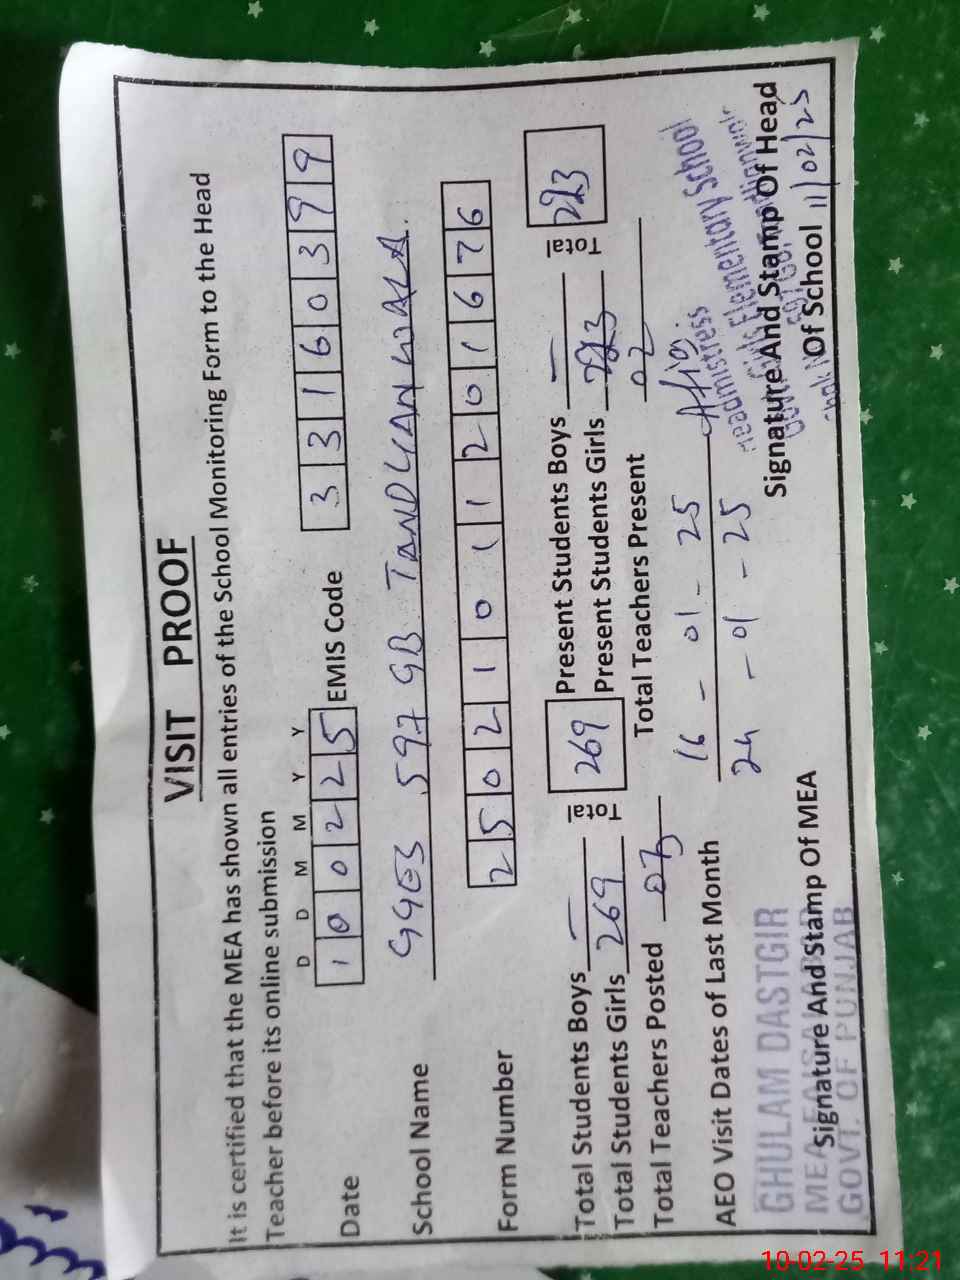 VISIT PROOF
It is certified that the MEA has shown all entries of the School Monitoring Form to the Head
Teacher before its online submission
D D M M Y Y
Date 100225 EMIS Code 33160399
School Name GGES 597 GB TANDLIANWALA
Form Number 250210112016 76
Total Students Boys — Total 269 Present Students Boys — Total 223
Total Students Girls 269 Present Students Girls 223
Total Teachers Posted 03 Total Teachers Present 02
AEO Visit Dates of Last Month 16-01-25
24-01-25
GHULAM DASTGIR
MEA FAISALABAD
GOVT. OF PUNJAB
Signature And Stamp Of MEA
Headmistress
Govt. Girls Elementary School
Signature And Stamp Of Head
Of School 11/02/25
10-02-25 11:21